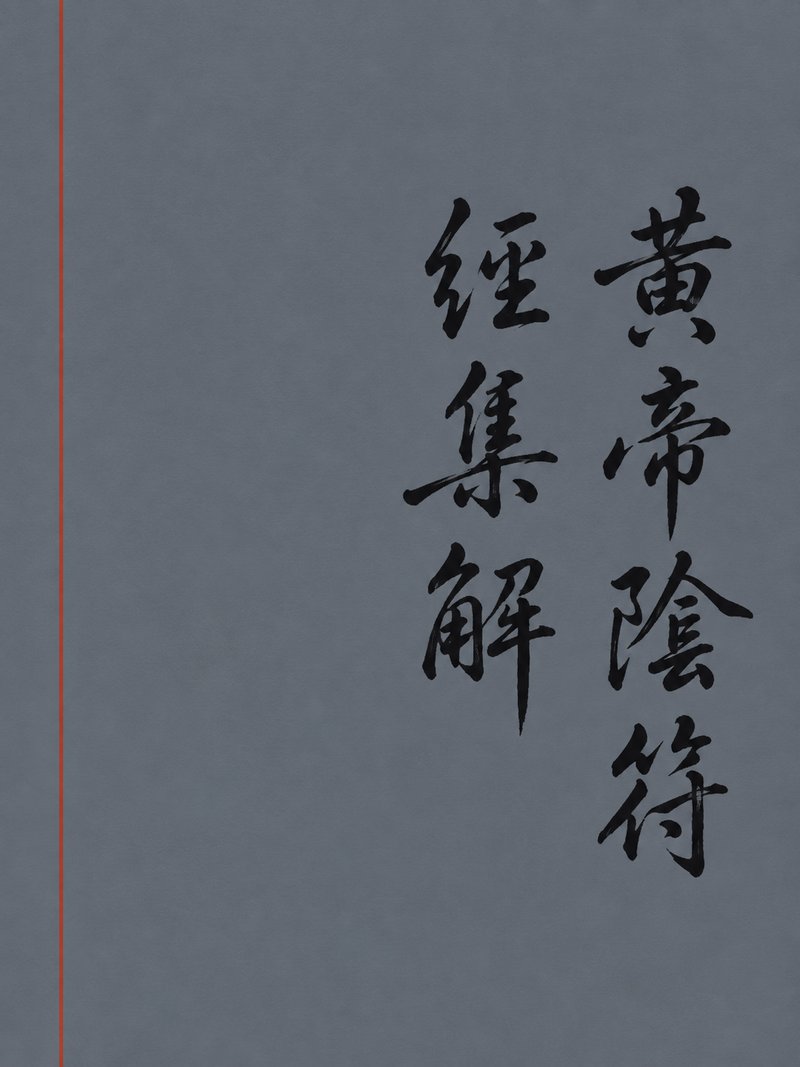 黄帝陰符
經集解